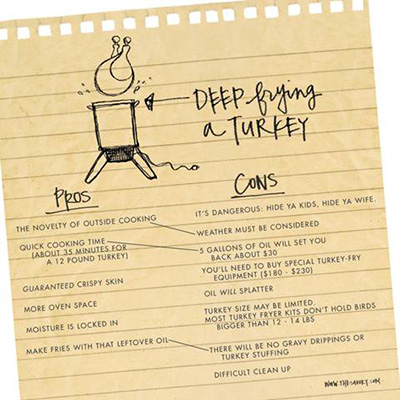 DEEP frying
a TURKEY
PROS
THE NOVELTY OF OUTSIDE COOKING
QUICK COOKING TIME
(ABOUT 35 MINUTES FOR
A 12 POUND TURKEY)
GUARANTEED CRISPY SKIN
MORE OVEN SPACE
MOISTURE IS LOCKED IN
MAKE FRIES WITH THAT LEFTOVER OIL
CONS
IT'S DANGEROUS: HIDE YA KIDS, HIDE YA WIFE.
WEATHER MUST BE CONSIDERED
5 GALLONS OF OIL WILL SET YOU
BACK ABOUT $30
YOU'LL NEED TO BUY SPECIAL TURKEY-FRY
EQUIPMENT ($180 - $230)
OIL WILL SPLATTER
TURKEY SIZE MAY BE LIMITED.
MOST TURKEY FRYER KITS DON'T HOLD BIRDS
BIGGER THAN 12 - 14 LBS
THERE WILL BE NO GRAVY DRIPPINGS OR
TURKEY STUFFING
DIFFICULT CLEAN UP
WWW.THESAVORY.COM